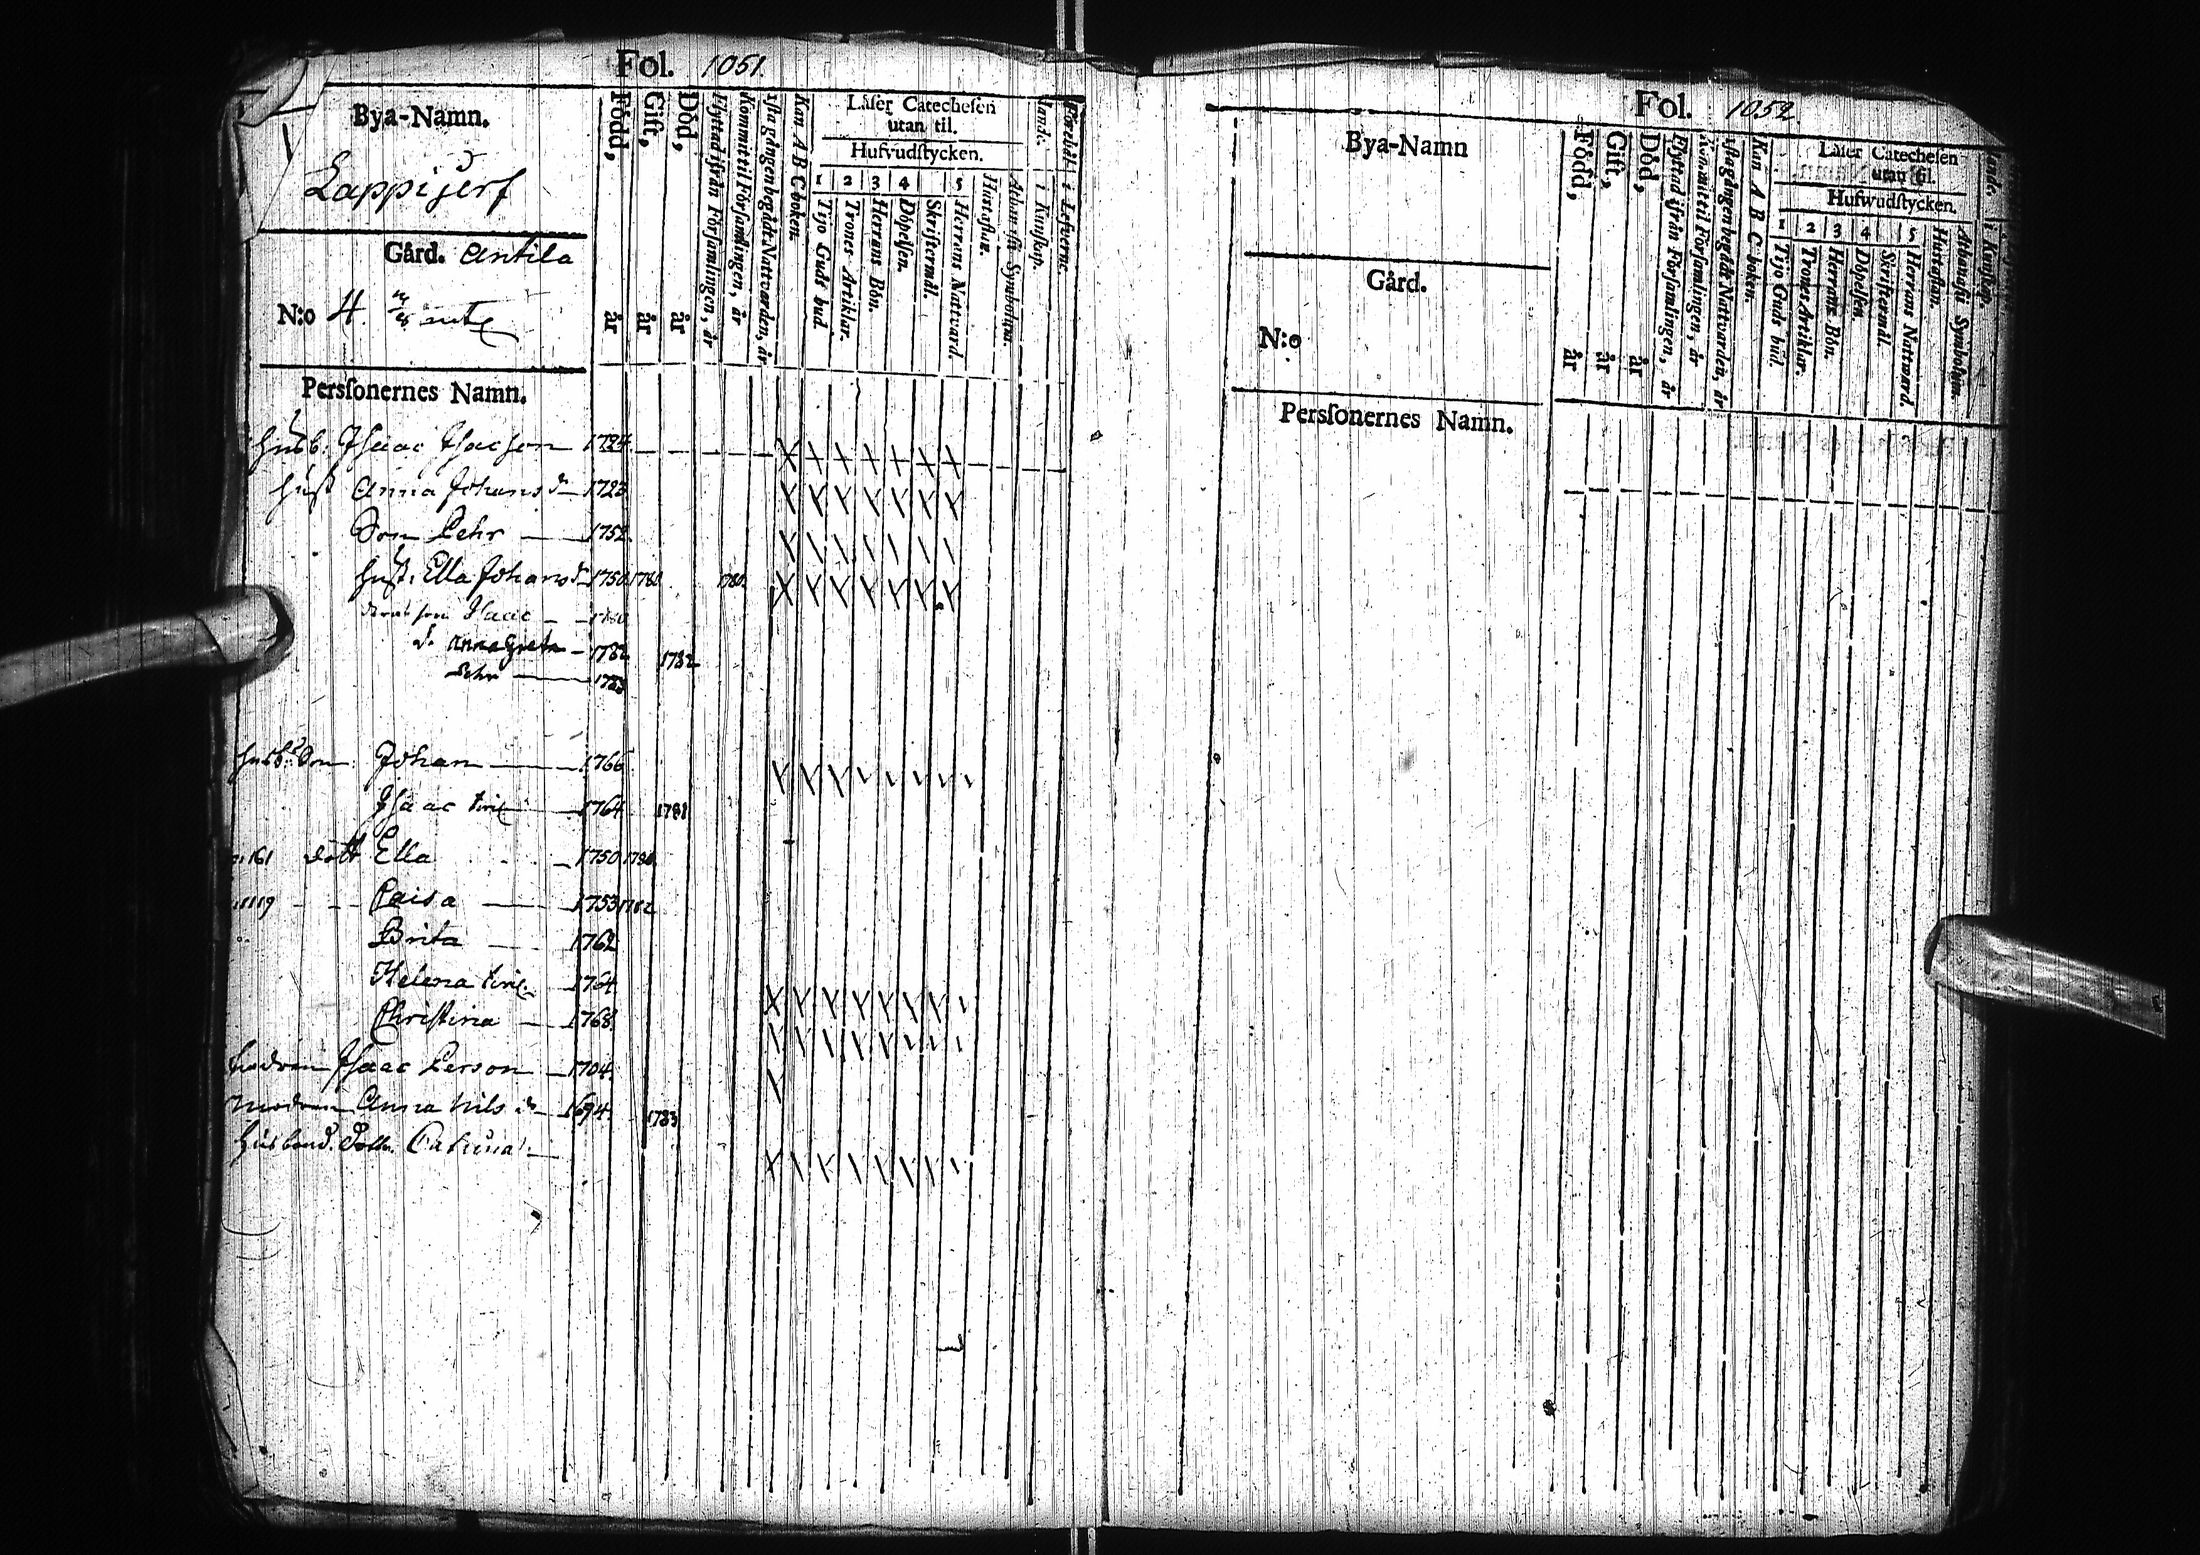 Fol. 1051.
Bya-Namn.
Lappijerf
Gård. Antila
N:o 4.
Född, år
Gift, år
Död, år
Flyttad ifrån Församlingen, år
Kommit til Församlingen, år
1sta gången begådt Nattvarden, år
Kan A B C boken.
Läser Catechesen
utan til.
Hufvudstycken.
1 2 3 4 5
Tijo Guds bud.
Trones Artiklar.
Herrans Bön.
Döpelsen.
Skriftermål.
Herrans Nattvard
Hustaflan.
Athanasii Symbolum.
i Kunskap.
i Lefverne.
Perssonernes Namn.
Husb: Isaac Isacson 1724.
Hust Anna Johans dr 1723
Son Pehr 1752.
Hust: Ella Johans dr 1750 1780 1780
son Isaac 1780
d. Anna Greta 1782 1782
Pehr 1783
Husb:s Son Johan 1766
Isaac 1764 1781
161 dott Ella 1750 1780
1119 Caisa 1753 1782
Brita 1762
Helena 1764
Christina 1768
Isaac Person 1704.
Modren Anna Nils dr 1694. 1783
Husbond. Dottr. Catrina
Fol. 1052.
Bya-Namn
Gård.
N:o
Född, år
Gift, år
Död, år
Flyttad ifrån Församlingen, år
Kommit til Församlingen, år
1sta gången begådt Nattvarden, år
Kan A B C boken.
Läser Catechesen
utan til.
Hufwudstycken.
1 2 3 4 5
Tijo Guds bud.
Trones Artiklar.
Herrans Bön.
Döpelsen.
Skriftermål.
Herrans Nattward.
Hustaflan.
Athanasii Symbolum.
i Kunskap.
Perssonernes Namn.